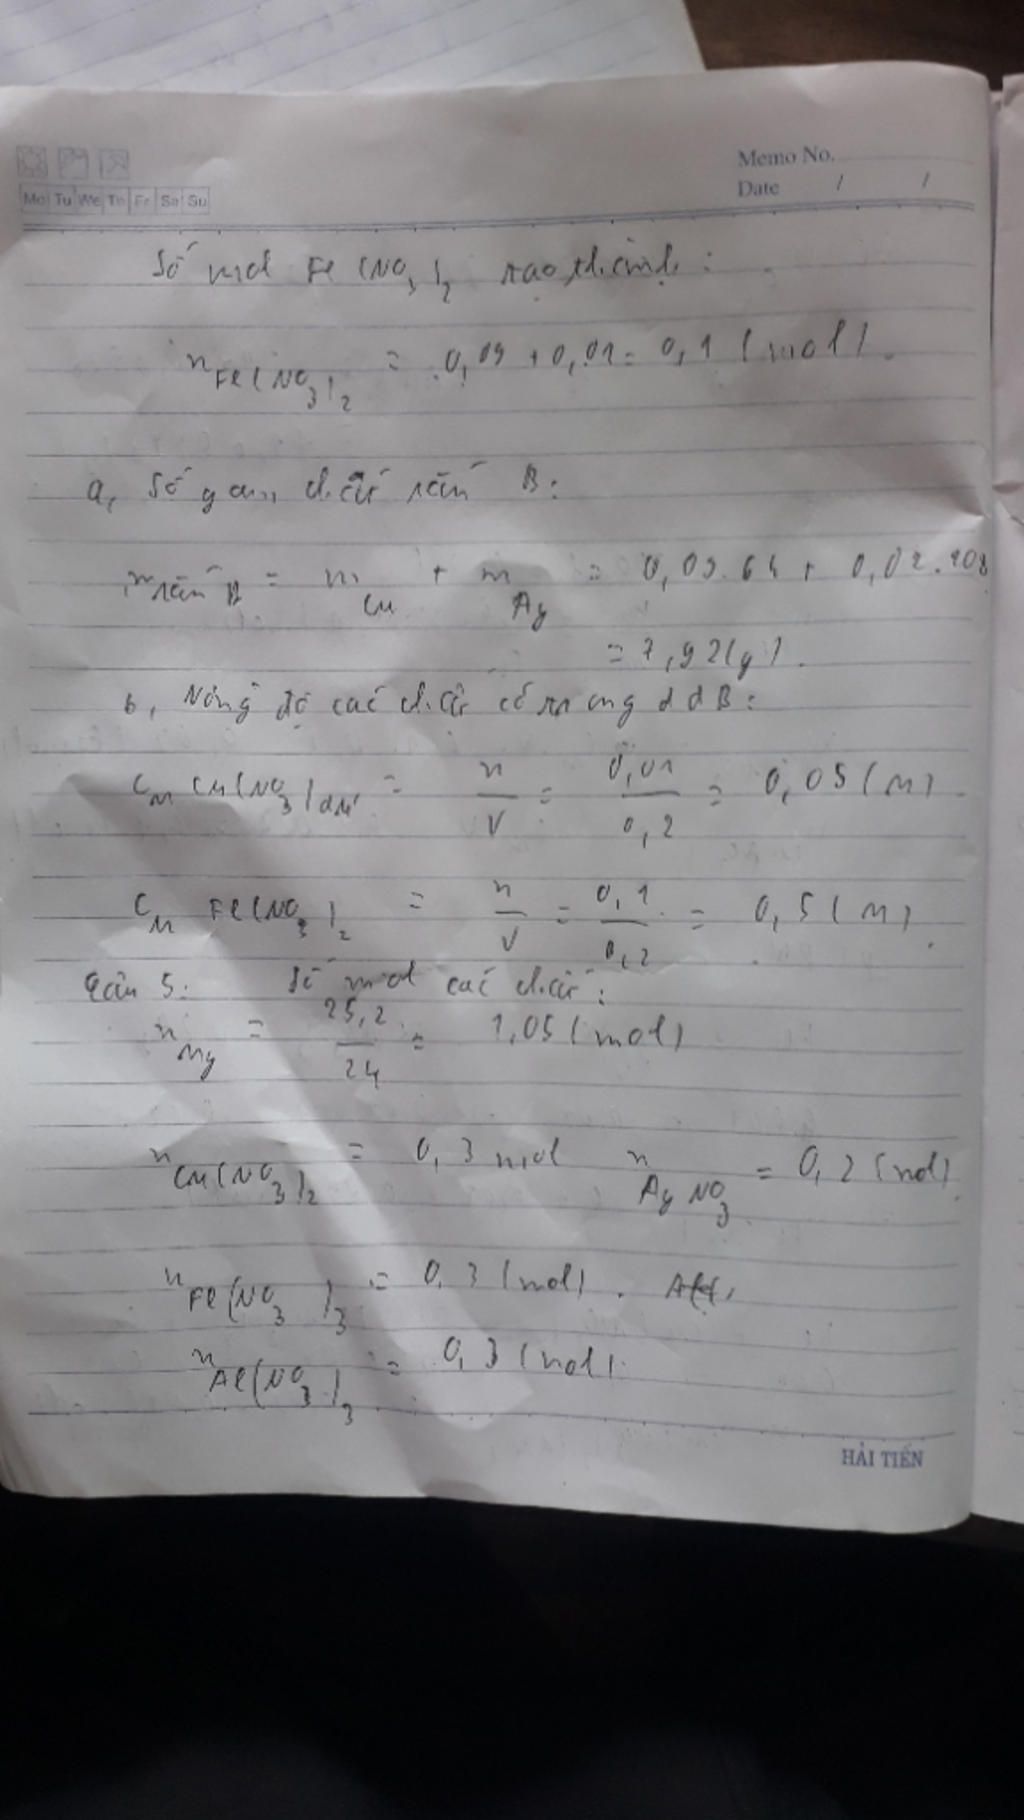 Memo No.
Mo Tu We Th Fr Sa Su
Date / /
Số mol Fe(NO3)2 tạo thành:
nFe(NO3)2 = 0,09 + 0,01 = 0,1 (mol).
a, Số gam chất rắn B:
mrắn B = mCu + mAg = 0,09.64 + 0,02.108
= 7,92 (g).
b, Nồng độ các chất có trong ddB:
CM Cu(NO3)dư = n/V = 0,01/0,2 = 0,05 (M).
CM Fe(NO3)2 = n/V = 0,1/0,2 = 0,5 (M).
Câu 5: Số mol các chất:
nMg = 25,2/24 = 1,05 (mol)
nCu(NO3)2 = 0,3 mol nAgNO3 = 0,2 (mol).
nFe(NO3)3 = 0,3 (mol).
nAl(NO3)3 = 0,3 (mol).
HẢI TIẾN